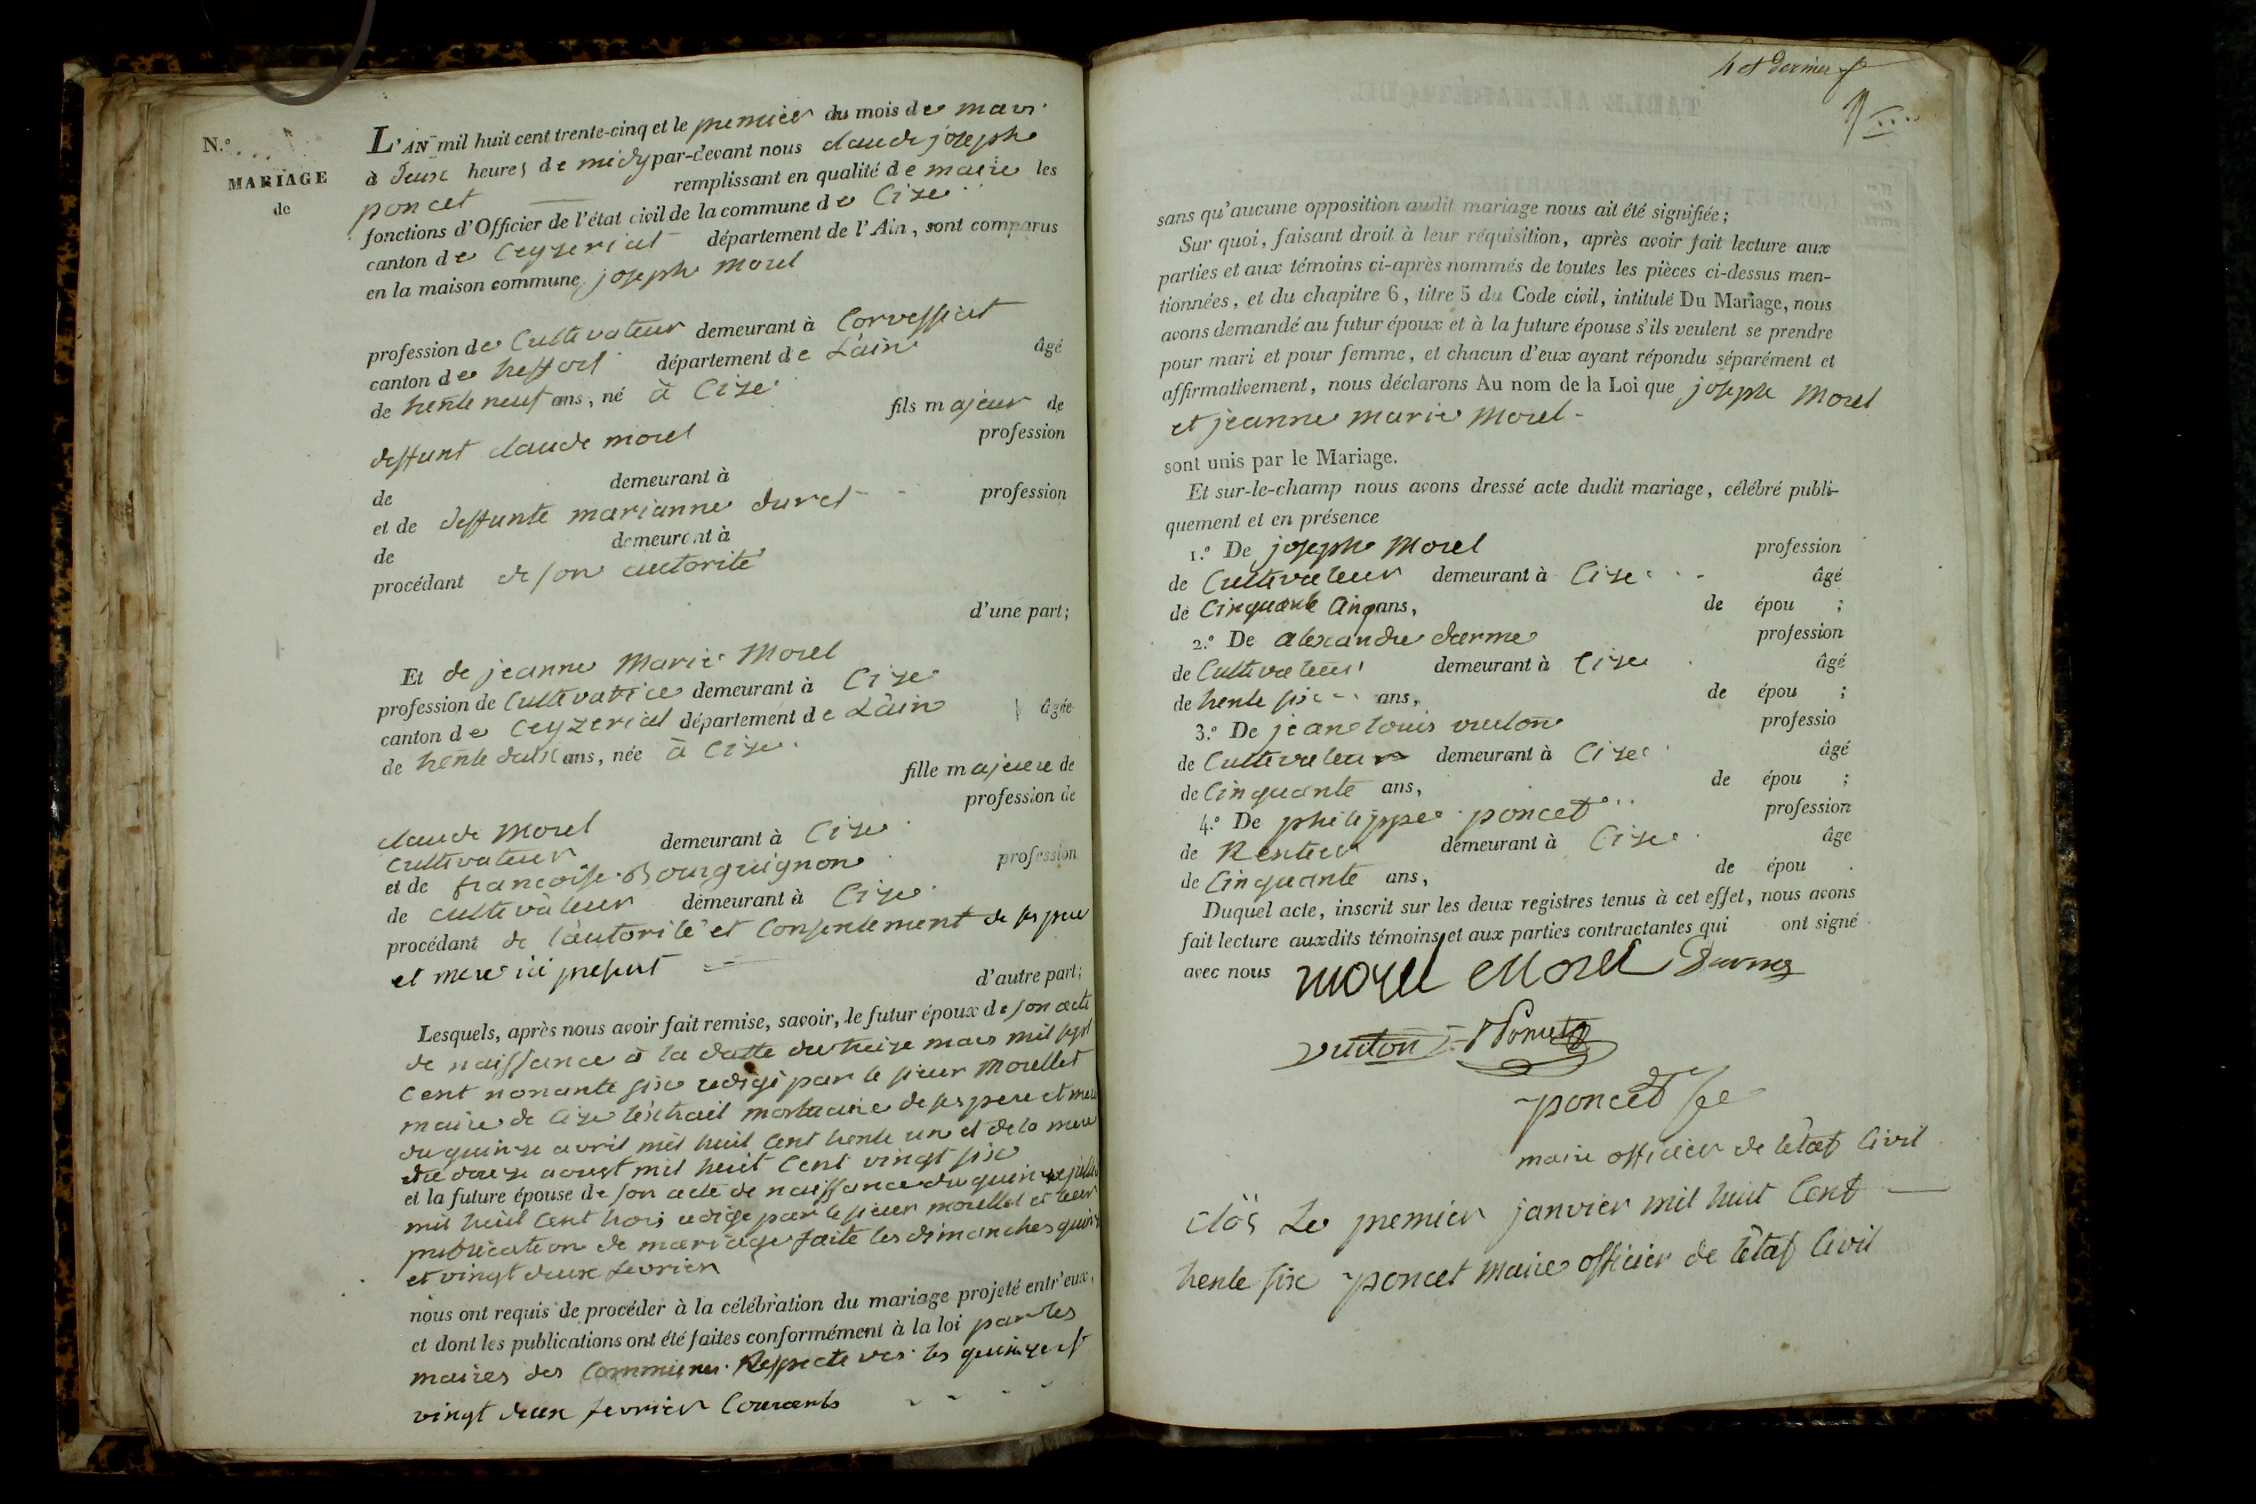 N.o
MARIAGE
de
L'AN mil huit cent trente-cinq et le premier du mois de mars
à deux heures de midy par-devant nous claude joseph
poncet remplissant en qualité de maire les
fonctions d'Officier de l'état civil de la commune de Cize
canton de Ceyzeriat département de l'Ain, sont comparus
en la maison commune joseph Morel
profession de Cultivateur demeurant à Corvessiat
canton de treffort département de L'ain âgé
de trente neuf ans, né à Cize
fils majeur de
deffunt claude morel profession
de demeurant à
et de deffunte marianne duret profession
de demeurant à
procédant de son autorité
d'une part;
Et de jeanne Marie Morel
profession de Cultivatrice demeurant à Cize
canton de Ceyzeriat département de L'ain âgée
de trente deux ans, née à Cize
fille majeure de
claude Morel profession de
Cultivateur demeurant à Cize
et de francoise Bourguignon profession
de cultivateur demeurant à Cize
procédant de l'autorité et Consentement de ses pere
et mere ici present
d'autre part;
Lesquels, après nous avoir fait remise, savoir, le futur époux de son acte
de naissance à la datte du treize mars mil sept
Cent nonante six redigé par le sieur Morellet
maire de Cize l'extrait mortuaire de ses pere et mere
du quinze avril mil huit Cent trente un et de la mere
du douze aoust mil huit Cent vingt six
et la future épouse de son acte de naissance du quinze
mil huit Cent trois redigé par le sieur morellet et leur
publication de mariage faite les dimanches quinze
et vingt deux fevrier
nous ont requis de procéder à la célébration du mariage projeté entr'eux,
et dont les publications ont été faites conformément à la loi par les
maires des Communes Respectives les quinze et
vingt deux fevrier Courants
4 et dernier
sans qu'aucune opposition audit mariage nous ait été signifiée;
Sur quoi, faisant droit à leur réquisition, après avoir fait lecture aux
parties et aux témoins ci-après nommés de toutes les pièces ci-dessus men-
tionnées, et du chapitre 6, titre 5 du Code civil, intitulé Du Mariage, nous
avons demandé au futur époux et à la future épouse s'ils veulent se prendre
pour mari et pour femme, et chacun d'eux ayant répondu séparément et
affirmativement, nous déclarons Au nom de la Loi que joseph Morel
et jeanne marie Morel
sont unis par le Mariage.
Et sur-le-champ nous avons dressé acte dudit mariage, célébré publi-
quement et en présence
1.o De joseph Morel profession
de Cultivateur demeurant à Cize âgé
de Cinquante Cinq ans, de épou ;
2.o De alexandre darme profession
de Cultivateur demeurant à Cize âgé
de trente six ans, de épou ;
3.o De jean louis vuiton professio
de Cultivateur demeurant à Cize âgé
de Cinquante ans, de épou ;
4.o De philippe poncet profession
de Rentier demeurant à Cize âge
de Cinquante ans, de épou .
Duquel acte, inscrit sur les deux registres tenus à cet effet, nous avons
fait lecture auxdits témoins et aux parties contractantes qui ont signé
avec nous morel Morel Darme
vuiton Poncet
poncet
maire officier de l'état Civil
Clos Le premier janvier mil huit Cent
trente six poncet maire officier de l'état Civil